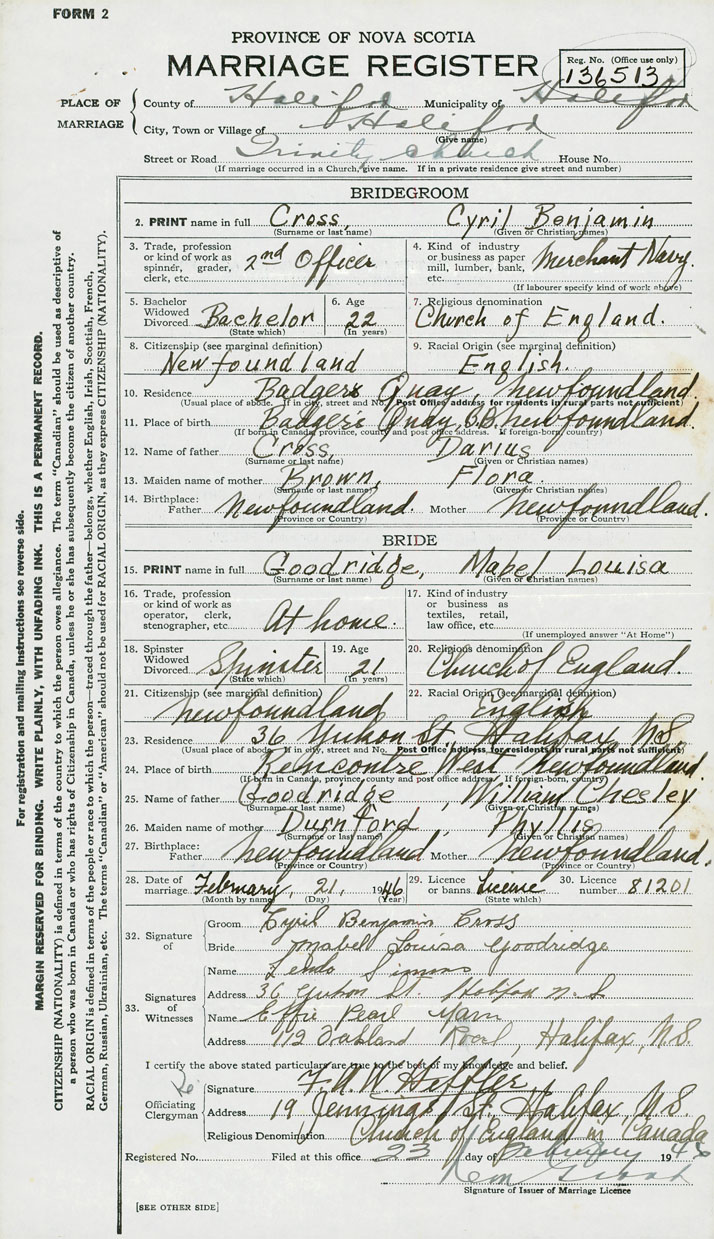 FORM 2
PROVINCE OF NOVA SCOTIA
MARRIAGE REGISTER
Reg. No. (Office use only)
136513
PLACE OF MARRIAGE
County of Halifax Municipality of Halifax
City, Town or Village of Halifax
(Give name)
Street or Road Trinity Church House No.
(If marriage occurred in a Church, give name. If in a private residence give street and number)
BRIDEGROOM
2. PRINT name in full Cross, Cyril Benjamin
(Surname or last name) (Given or Christian names)
3. Trade, profession or kind of work as spinner, grader, clerk, etc. 2nd Officer
4. Kind of industry or business as paper mill, lumber, bank, etc. Merchant Navy.
(If labourer specify kind of work above)
5. Bachelor Widowed Divorced Bachelor
(State which)
6. Age 22
(In years)
7. Religious denomination
Church of England.
8. Citizenship (see marginal definition)
Newfoundland
9. Racial Origin (see marginal definition)
English.
10. Residence Badgers Quay, Newfoundland.
(Usual place of abode. If in city, street and No. Post Office address for residents in rural parts not sufficient)
11. Place of birth Badgers Quay, B.B. Newfoundland.
(If born in Canada, province, county and post office address. If foreign-born, country)
12. Name of father Cross, Darius
(Surname or last name) (Given or Christian names)
13. Maiden name of mother Brown, Flora.
(Surname or last name) (Given or Christian names)
14. Birthplace: Father Newfoundland. Mother Newfoundland.
(Province or Country) (Province or Country)
BRIDE
15. PRINT name in full Goodridge, Mabel Louisa
(Surname or last name) (Given or Christian names)
16. Trade, profession or kind of work as operator, clerk, stenographer, etc. At home.
17. Kind of industry or business as textiles, retail, law office, etc.
(If unemployed answer "At Home")
18. Spinster Widowed Divorced Spinster
(State which)
19. Age 21
(In years)
20. Religious denomination
Church of England.
21. Citizenship (see marginal definition)
Newfoundland
22. Racial Origin (see marginal definition)
English
23. Residence 36 Yukon St., Halifax N.S.
(Usual place of abode. If in city, street and No. Post Office address for residents in rural parts not sufficient)
24. Place of birth Rencontre West Newfoundland.
(If born in Canada, province, county and post office address. If foreign-born, country)
25. Name of father Goodridge, William Chesley
(Surname or last name) (Given or Christian names)
26. Maiden name of mother Durnford, Phyllis
(Surname or last name) (Given or Christian names)
27. Birthplace: Father Newfoundland Mother Newfoundland.
(Province or Country) (Province or Country)
28. Date of marriage February, 21, 1946
(Month by name) (Day) (Year)
29. Licence or banns License
(State which)
30. Licence number 81201
32. Signature of
Groom Cyril Benjamin Cross
Bride Mabel Louisa Goodridge
33. Signatures of Witnesses
Name Simms
Address 36 Yukon St. Halifax N.S
Name Effie Pearl
Address 112 Oakland Road, Halifax, N.S.
I certify the above stated particulars are true to the best of my knowledge and belief.
Officiating Clergyman
Signature
Address 19 Jennings St., Halifax, N.S.
Religious Denomination Church of England in Canada
Registered No. Filed at this office 23 day of February 1946
Signature of Issuer of Marriage Licence
[SEE OTHER SIDE]
For registration and mailing instructions see reverse side.
MARGIN RESERVED FOR BINDING. WRITE PLAINLY, WITH UNFADING INK. THIS IS A PERMANENT RECORD.
CITIZENSHIP (NATIONALITY) is defined in terms of the country to which the person owes allegiance. The term "Canadian" should be used as descriptive of
a person who was born in Canada or who has rights of Citizenship in Canada, unless he or she has subsequently become the citizen of another country.
RACIAL ORIGIN is defined in terms of the people or race to which the person—traced through the father—belongs, whether English, Irish, Scottish, French,
German, Russian, Ukrainian, etc. The terms "Canadian" or "American" should not be used for RACIAL ORIGIN, as they express CITIZENSHIP (NATIONALITY).